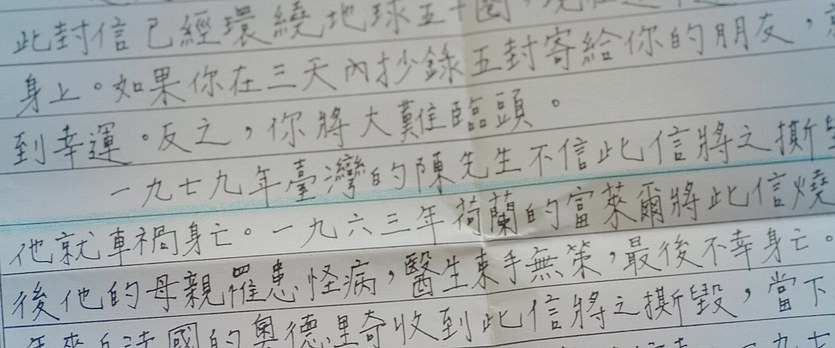 此封信已經環繞地球五十圈，現在
身上。如果你在三天內抄錄五封寄給你的朋友，
到幸運。反之，你將大難臨頭。
一九七九年臺灣的陳先生不信此信將之撕
他就車禍身亡。一九六三年荷蘭的富萊爾將此信燒
後他的母親罹患怪病，醫生束手無策，最後不幸身亡。
年來自法國的奧德里奇收到此信將之撕毀，當下
一九七